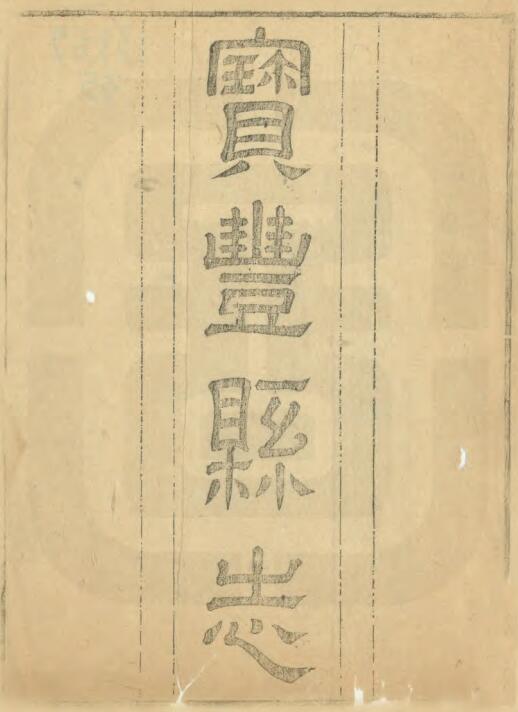 寶豐縣志